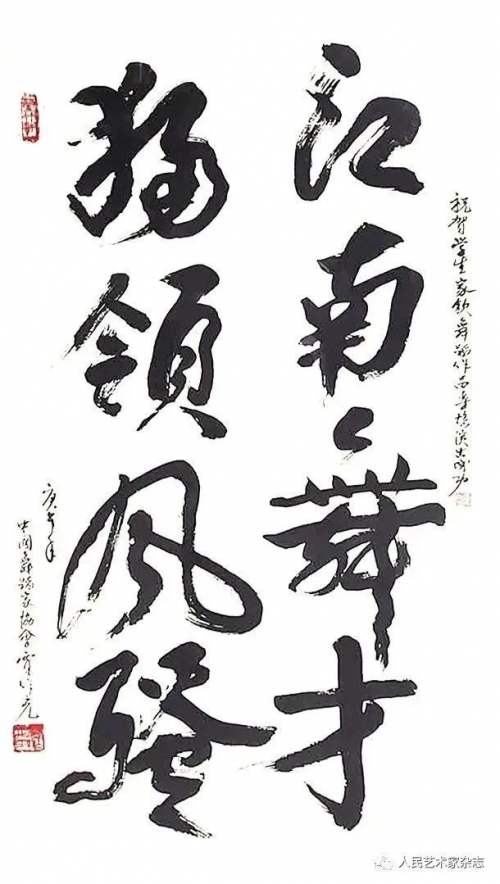 祝賀学生家欽舞蹈作品专场演出成功
江南舞才
獨領风騷
庚午年
中国舞蹈家协会賈作光
人民艺术家杂志